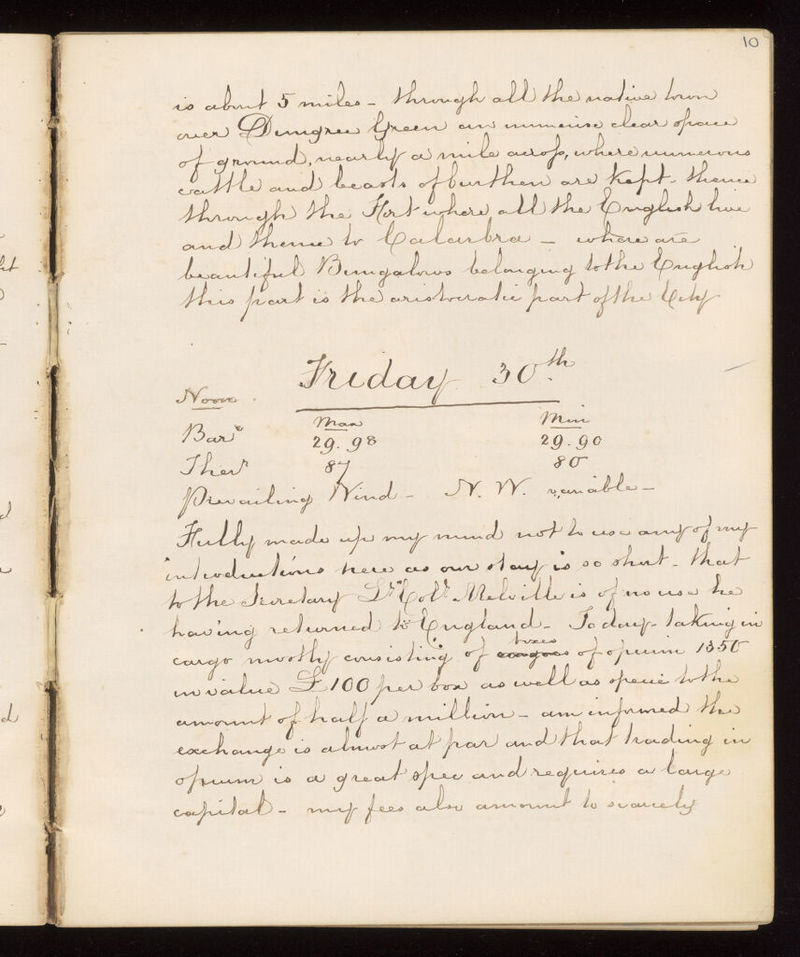 10
is about 5 miles - through all the native town
over Dungree Green an immense clear space
of ground, nearly a mile across, where numerous
cattle and beasts of burthen are kept - thence
through the Fort where all the English live
and thence to Calarbra - where are
beautiful Bungalows belonging to the English
this part is the aristocratic part of the City
Friday 30th.
Noon.
Max Min
Barr 29.98 29.90
Therr 87 80
Prevailing Wind - N. W. variable -
Fully made up my mind not to use any of my
introductions here as our stay is so short - that
to the Secretary Lt. Coll. Melville is of no use he
having returned to England - Today - taking in
boxes
cargo mostly consisting of cargoes of opium 1350
in value £100 per box as well as specie to the
amount of half a million - am informed the
exchange is almost at par and that trading in
opium is a great spec and requires a large
capital - my fees also amount to scarcely